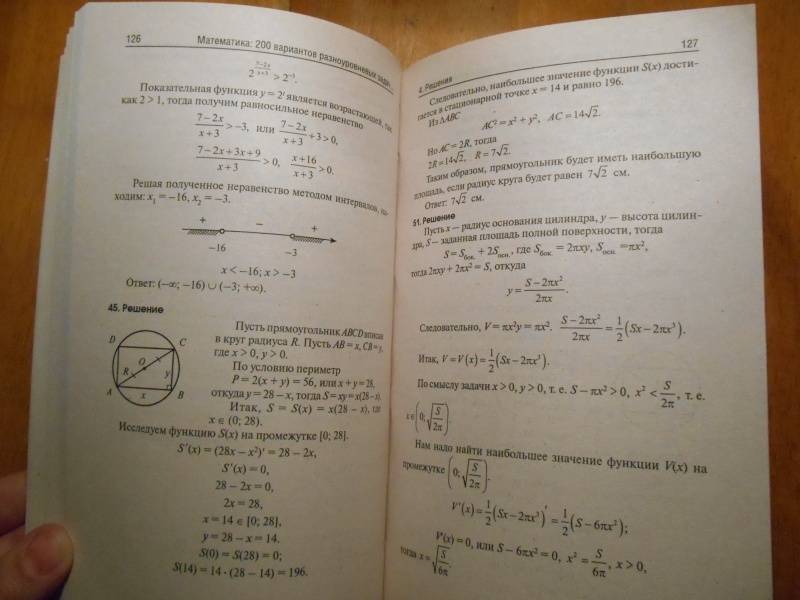 126 Математика: 200 вариантов разноуровневых задач
2^{\frac{7-2x}{x+3}} > 2^{-3}.
Показательная функция y = 2^t является возрастающей, так
как 2 > 1, тогда получим равносильное неравенство
\frac{7-2x}{x+3} > -3, или \frac{7-2x}{x+3} + 3 > 0,
\frac{7-2x+3x+9}{x+3} > 0, \frac{x+16}{x+3} > 0.
Решая полученное неравенство методом интервалов, на-
ходим: x₁ = –16, x₂ = –3.
+ – +
–16 –3
x < –16; x > –3
Ответ: (–∞; –16) ∪ (–3; +∞).
45. Решение
D C
O
R y
A x B
Пусть прямоугольник ABCD вписан
в круг радиуса R. Пусть AB = x, CB = y,
где x > 0, y > 0.
По условию периметр
P = 2(x + y) = 56, или x + y = 28,
откуда y = 28 – x, тогда S = xy = x(28 – x).
Итак, S = S(x) = x(28 – x), где
x ∈ (0; 28).
Исследуем функцию S(x) на промежутке [0; 28].
S′(x) = (28x – x²)′ = 28 – 2x,
S′(x) = 0,
28 – 2x = 0,
2x = 28,
x = 14 ∈ [0; 28],
y = 28 – x = 14.
S(0) = S(28) = 0;
S(14) = 14 · (28 – 14) = 196.
4. Решения 127
Следовательно, наибольшее значение функции S(x) дости-
гается в стационарной точке x = 14 и равно 196.
Из ΔABC
AC² = x² + y², AC = 14√2.
Но AC = 2R, тогда
2R = 14√2, R = 7√2.
Таким образом, прямоугольник будет иметь наибольшую
площадь, если радиус круга будет равен 7√2 см.
Ответ: 7√2 см.
51. Решение
Пусть x – радиус основания цилиндра, y – высота цилин-
дра, S – заданная площадь полной поверхности, тогда
S = S_{бок.} + 2S_{осн.}, где S_{бок.} = 2πxy, S_{осн.} = πx²,
тогда 2πxy + 2πx² = S, откуда
y = \frac{S-2πx²}{2πx}.
Следовательно, V = πx²y = πx² · \frac{S-2πx²}{2πx} = \frac{1}{2}(Sx – 2πx³).
Итак, V = V(x) = \frac{1}{2}(Sx – 2πx³).
По смыслу задачи x > 0, y > 0, т. е. S – πx² > 0, x² < \frac{S}{2π}, т. е.
x ∈ (0; \sqrt{\frac{S}{2π}}).
Нам надо найти наибольшее значение функции V(x) на
промежутке (0; \sqrt{\frac{S}{2π}}).
V′(x) = \frac{1}{2}(Sx – 2πx³)′ = \frac{1}{2}(S – 6πx²);
V′(x) = 0, или S – 6πx² = 0, x² = \frac{S}{6π}, x > 0,
тогда x = \sqrt{\frac{S}{6π}}.